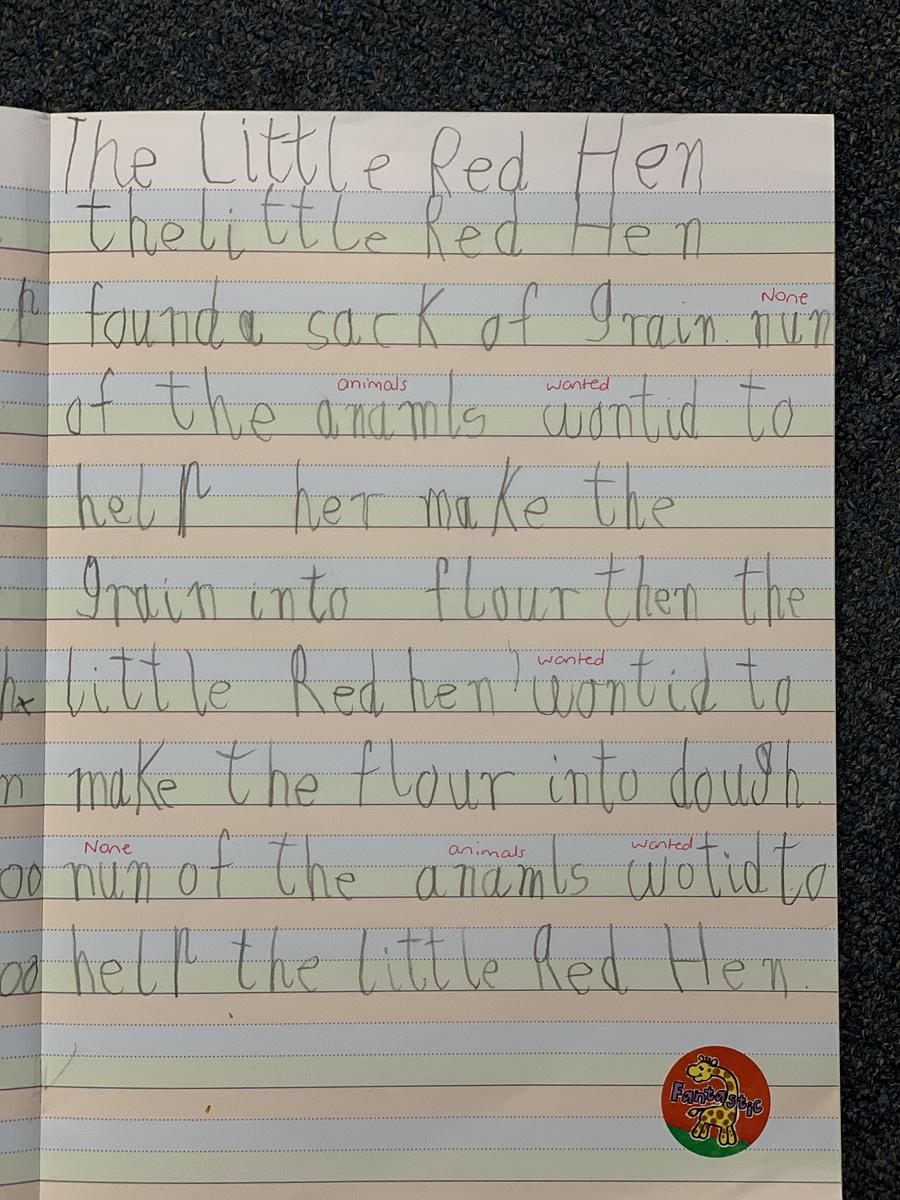 The Little Red Hen
the little Red Hen
found a sack of grain. nun
None
of the anamls wontid to
animals wanted
help her make the
grain into flour then the
little Red hen wontid to
wanted
make the flour into dough.
nun of the anamls wotid to
None animals wanted
help the little Red Hen.
Fantastic